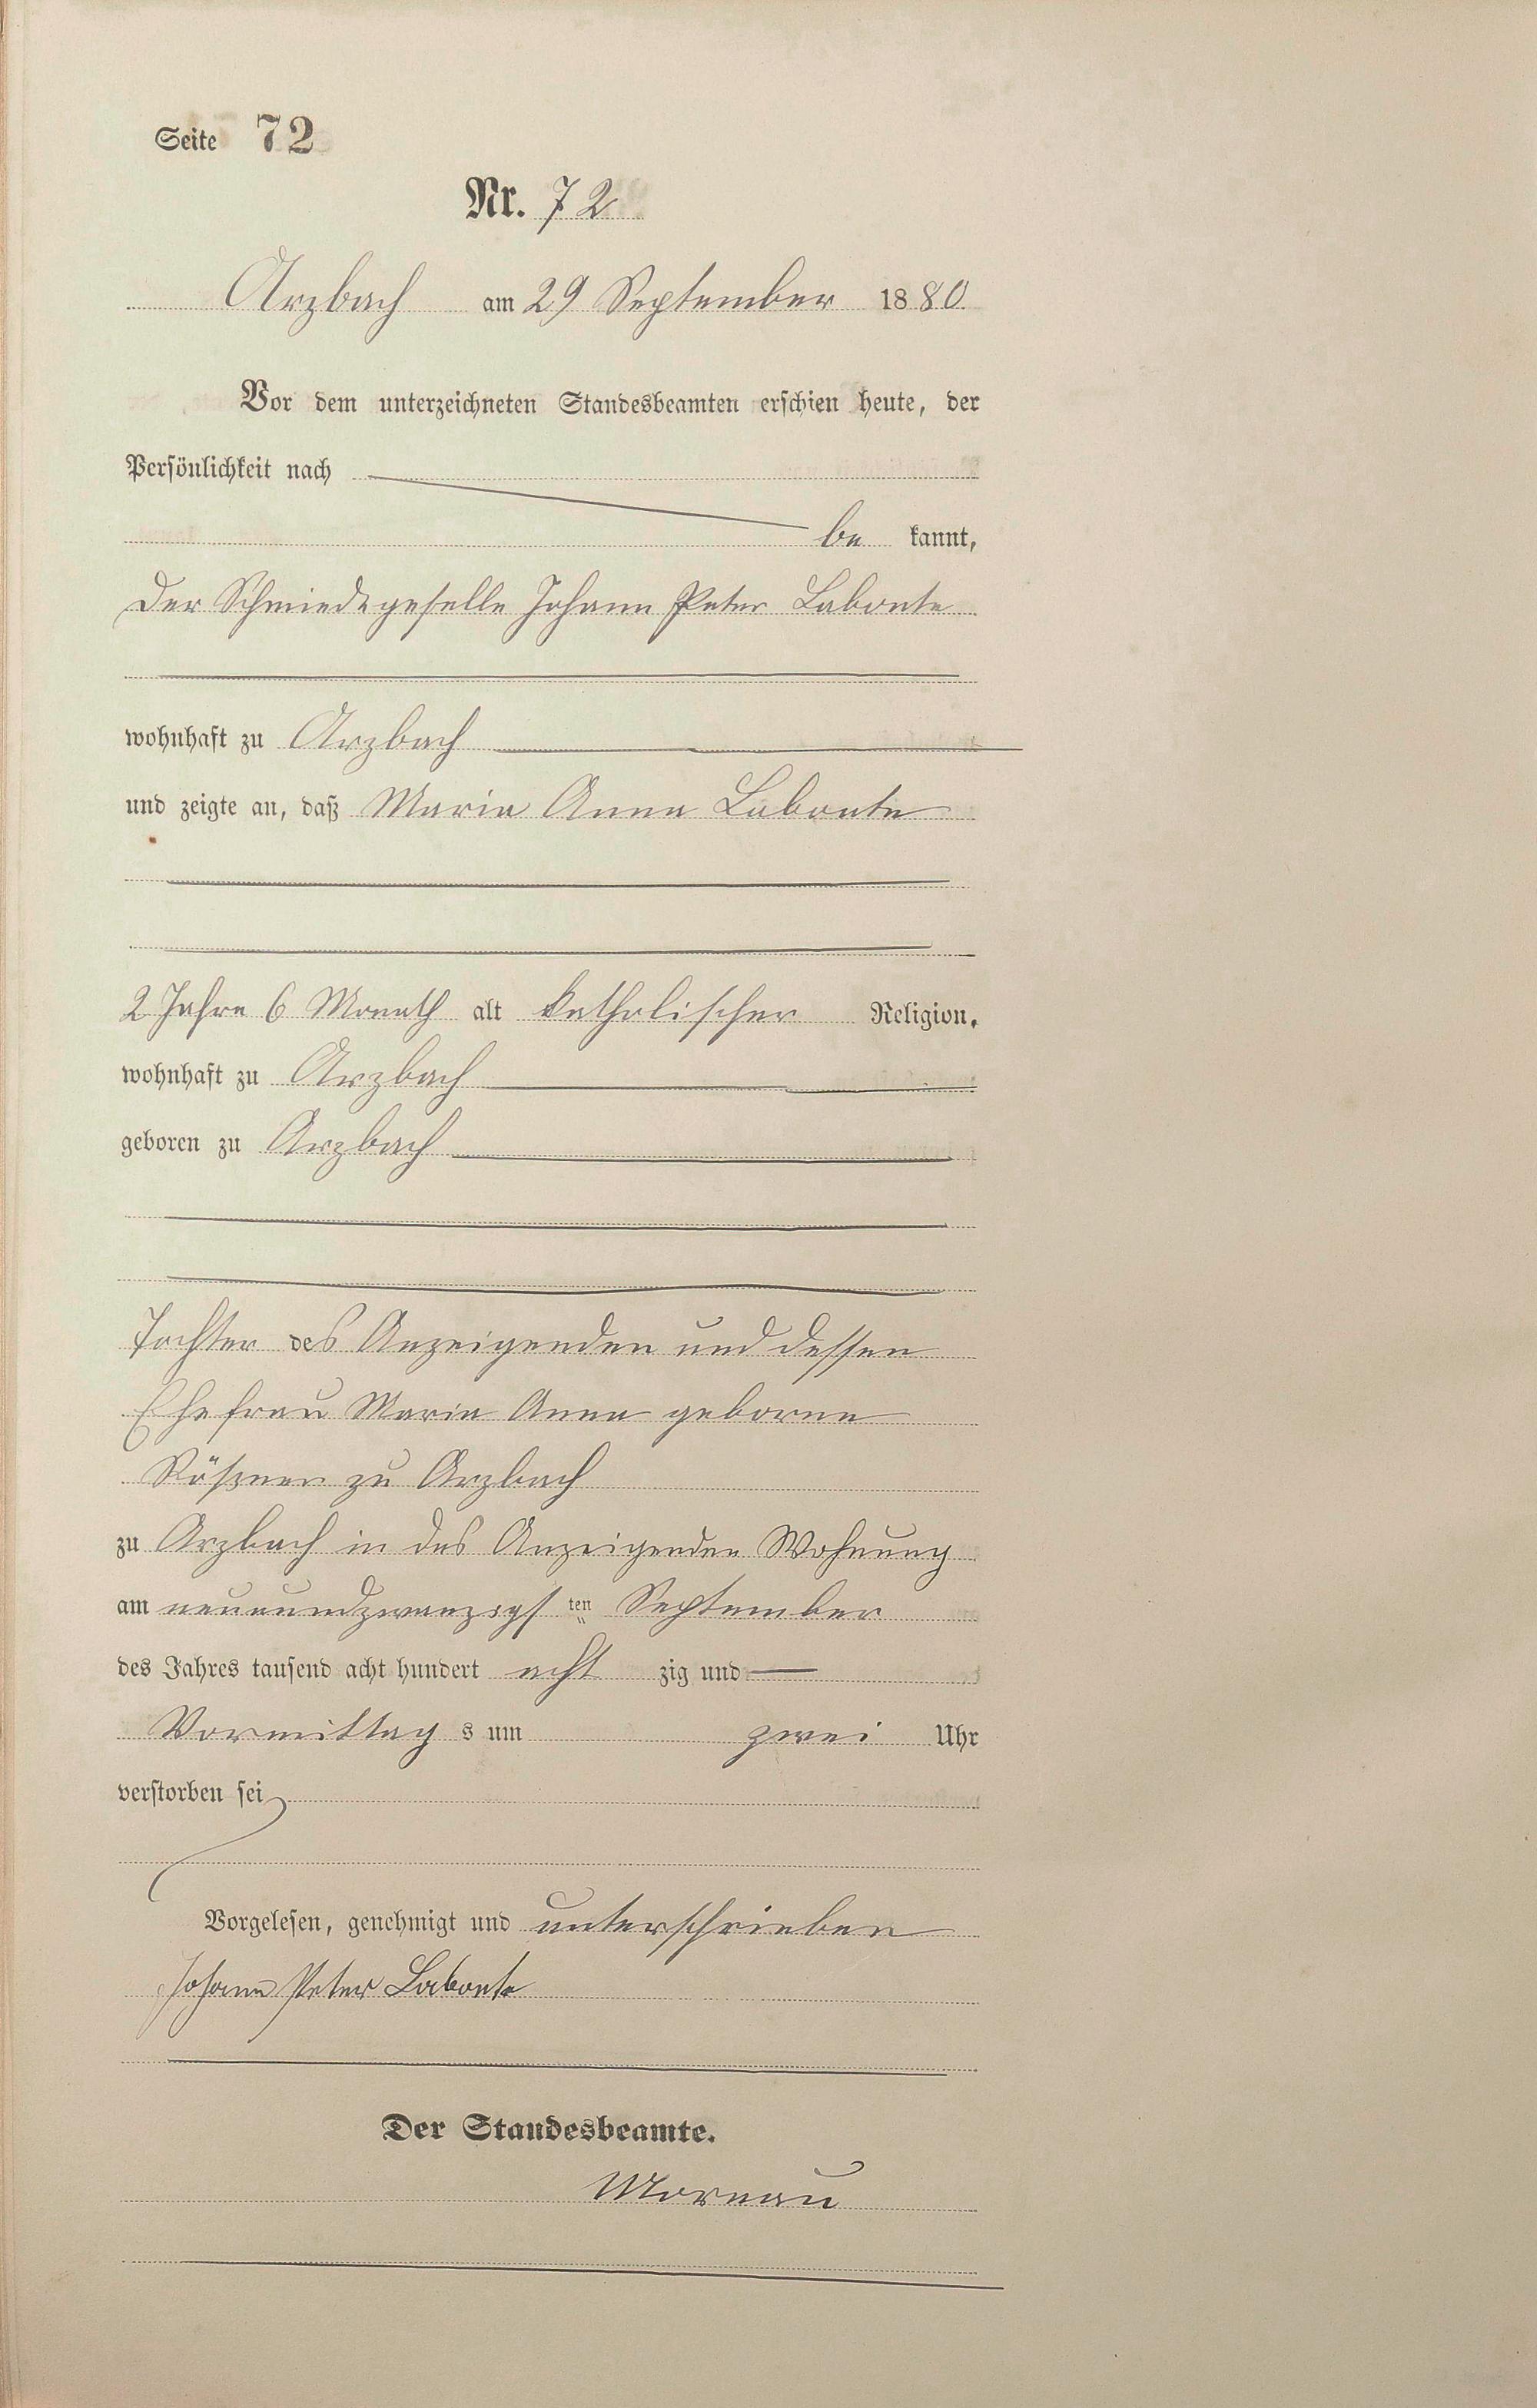 Seite 72
Nr. 72
Arzbach am 29 September 1880.
Vor dem unterzeichneten Standesbeamten erschien heute, der
Persönlichkeit nach
be kannt,
der Schmiedegeselle Johann Peter Labonte
wohnhaft zu Arzbach
und zeigte an, daß Maria Anna Labonte
2 Jahre 6 Monath alt katholischer Religion,
wohnhaft zu Arzbach
geboren zu Arzbach
Tochter des Anzeigenden und dessen
Ehefrau Maria Anna geborne
Rößner zu Arzbach
zu Arzbach in des Anzeigenden Wohnung
am neunundzwanzigsten September
des Jahres tausend acht hundert acht zig und
Vormittag s um zwei Uhr
verstorben sei
Vorgelesen, genehmigt und unterschrieben
Johann Peter Labonte
Der Standesbeamte.
Moreau